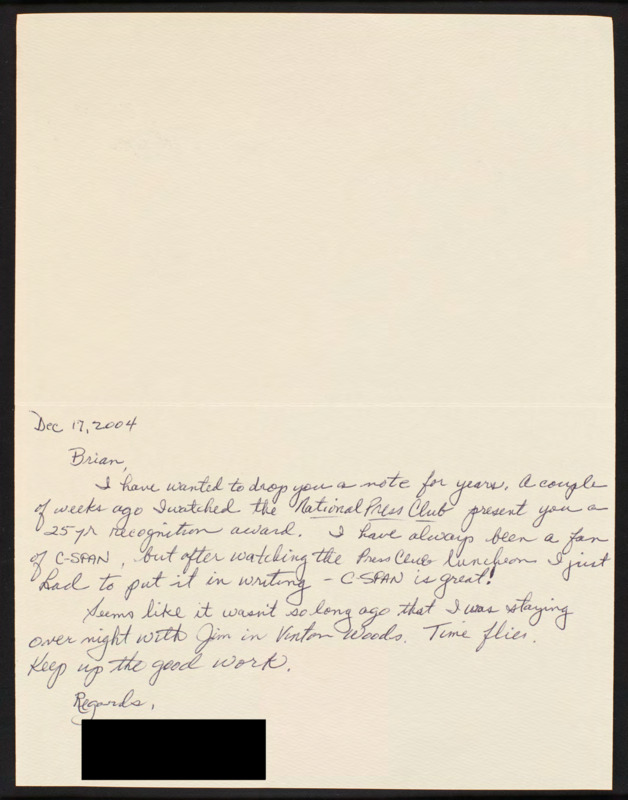 Dec 17, 2004
Brian,
I have wanted to drop you a note for years. A couple
of weeks ago I watched the National Press Club present you a
25 yr recognition award. I have always been a fan
of C-SPAN, but after watching the Press Club luncheon I just
had to put it in writing - C-SPAN is great!
Seems like it wasn't so long ago that I was staying
over night with Jim in Vinton Woods. Time flies.
Keep up the good work.
Regards,